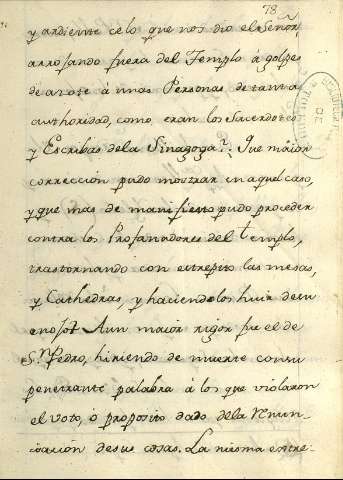 78
y ardiente celo que nos dio el Señor
arrojando fuera del Templo á golpes
de azote á unas Personas de tanta
authoridad, como eran los Sacerdotes
y Escribas dela Sinagoga? Que maior
correccion pudo mostrar en aquel caso,
y que mas de manifiesto pudo proceder
contra los Profanadores del templo,
trastornando con estrepito las mesas,
y Cathedras, y haciendolos huir de su
enojo? Aun maior rigor fue el de
S. Pedro, hiriendo de muerte con su
penetrante palabra á los que violaron
el voto, ó proposito dado dela renun-
ciacion de sus cosas. La misma entre-